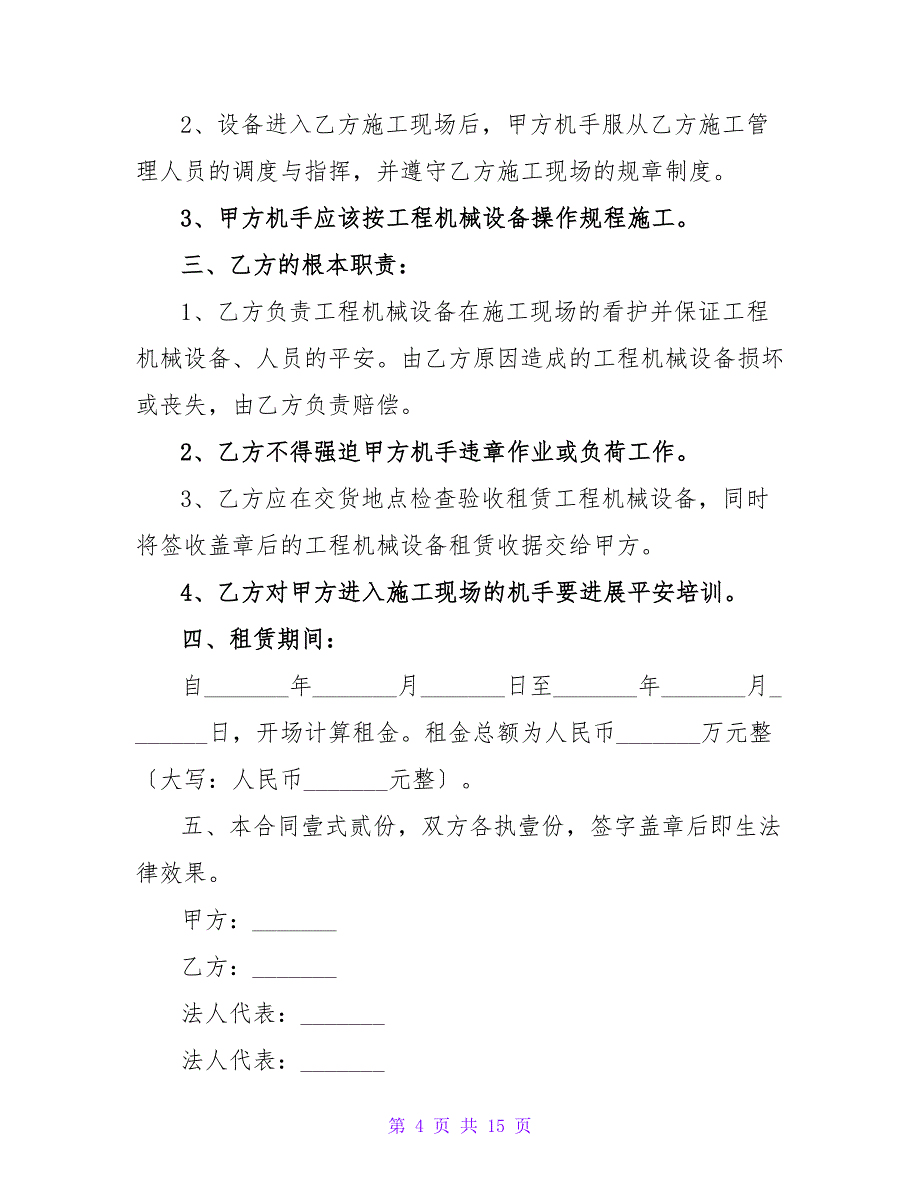 2、设备进入乙方施工现场后，甲方机手服从乙方施工管
理人员的调度与指挥，并遵守乙方施工现场的规章制度。
3、甲方机手应该按工程机械设备操作规程施工。
三、乙方的根本职责：
1、乙方负责工程机械设备在施工现场的看护并保证工程
机械设备、人员的平安。由乙方原因造成的工程机械设备损坏
或丧失，由乙方负责赔偿。
2、乙方不得强迫甲方机手违章作业或负荷工作。
3、乙方应在交货地点检查验收租赁工程机械设备，同时
将签收盖章后的工程机械设备租赁收据交给甲方。
4、乙方对甲方进入施工现场的机手要进展平安培训。
四、租赁期间：
自_______年_______月_______日至_______年_______月_
______日，开场计算租金。租金总额为人民币_______万元整
〔大写：人民币_______元整〕。
五、本合同壹式贰份，双方各执壹份，签字盖章后即生法
律效果。
甲方：_______
乙方：_______
法人代表：_______
法人代表：_______
第 4 页 共 15 页